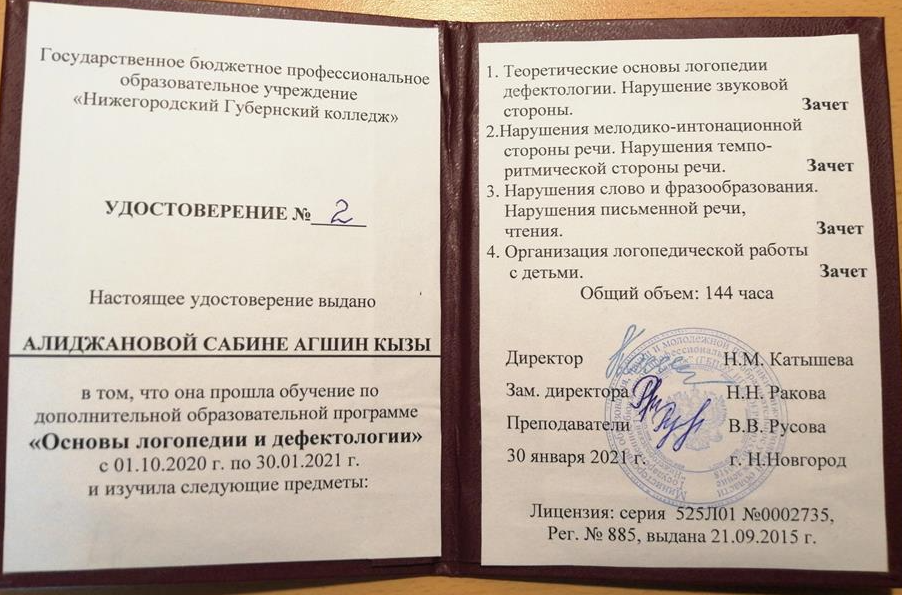 Государственное бюджетное профессиональное
образовательное учреждение
«Нижегородский Губернский колледж»
УДОСТОВЕРЕНИЕ № 2
Настоящее удостоверение выдано
АЛИДЖАНОВОЙ САБИНЕ АГШИН КЫЗЫ
в том, что она прошла обучение по
дополнительной образовательной программе
«Основы логопедии и дефектологии»
с 01.10.2020 г. по 30.01.2021 г.
и изучила следующие предметы:
1. Теоретические основы логопедии
дефектологии. Нарушение звуковой
стороны. Зачет
2.Нарушения мелодико-интонационной
стороны речи. Нарушения темпо-
ритмической стороны речи. Зачет
3. Нарушения слово и фразообразования.
Нарушения письменной речи,
чтения. Зачет
4. Организация логопедической работы
с детьми. Зачет
Общий объем: 144 часа
Директор Н.М. Катышева
Зам. директора Н.Н. Ракова
Преподаватели В.В. Русова
30 января 2021 г. г. Н.Новгород
Лицензия: серия 525Л01 №0002735,
Рег. № 885, выдана 21.09.2015 г.